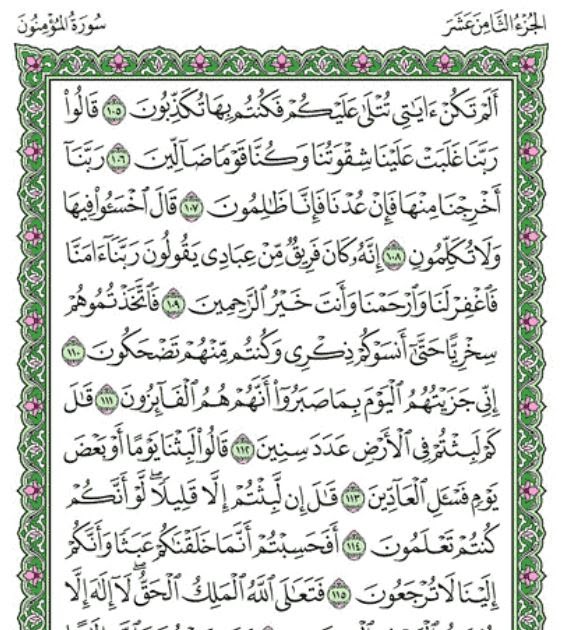 الجُزْءُ الثَّامِنَ عَشَرَ
سُورَةُ المُؤْمِنُونَ
أَلَمْ تَكُنْ ءَايَٰتِى تُتْلَىٰ عَلَيْكُمْ فَكُنتُم بِهَا تُكَذِّبُونَ ١٠٥ قَالُوا۟
رَبَّنَا غَلَبَتْ عَلَيْنَا شِقْوَتُنَا وَكُنَّا قَوْمًا ضَآلِّينَ ١٠٦ رَبَّنَآ
أَخْرِجْنَا مِنْهَا فَإِنْ عُدْنَا فَإِنَّا ظَٰلِمُونَ ١٠٧ قَالَ ٱخْسَـُٔوا۟ فِيهَا
وَلَا تُكَلِّمُونِ ١٠٨ إِنَّهُۥ كَانَ فَرِيقٌ مِّنْ عِبَادِى يَقُولُونَ رَبَّنَآ ءَامَنَّا
فَٱغْفِرْ لَنَا وَٱرْحَمْنَا وَأَنتَ خَيْرُ ٱلرَّٰحِمِينَ ١٠٩ فَٱتَّخَذْتُمُوهُمْ
سِخْرِيًّا حَتَّىٰٓ أَنسَوْكُمْ ذِكْرِى وَكُنتُم مِّنْهُمْ تَضْحَكُونَ ١١٠
إِنِّى جَزَيْتُهُمُ ٱلْيَوْمَ بِمَا صَبَرُوٓا۟ أَنَّهُمْ هُمُ ٱلْفَآئِزُونَ ١١١ قَٰلَ
كَمْ لَبِثْتُمْ فِى ٱلْأَرْضِ عَدَدَ سِنِينَ ١١٢ قَالُوا۟ لَبِثْنَا يَوْمًا أَوْ بَعْضَ
يَوْمٍ فَسْـَٔلِ ٱلْعَآدِّينَ ١١٣ قَٰلَ إِن لَّبِثْتُمْ إِلَّا قَلِيلًا ۖ لَّوْ أَنَّكُمْ
كُنتُمْ تَعْلَمُونَ ١١٤ أَفَحَسِبْتُمْ أَنَّمَا خَلَقْنَٰكُمْ عَبَثًا وَأَنَّكُمْ
إِلَيْنَا لَا تُرْجَعُونَ ١١٥ فَتَعَٰلَى ٱللَّهُ ٱلْمَلِكُ ٱلْحَقُّ ۖ لَآ إِلَٰهَ إِلَّا